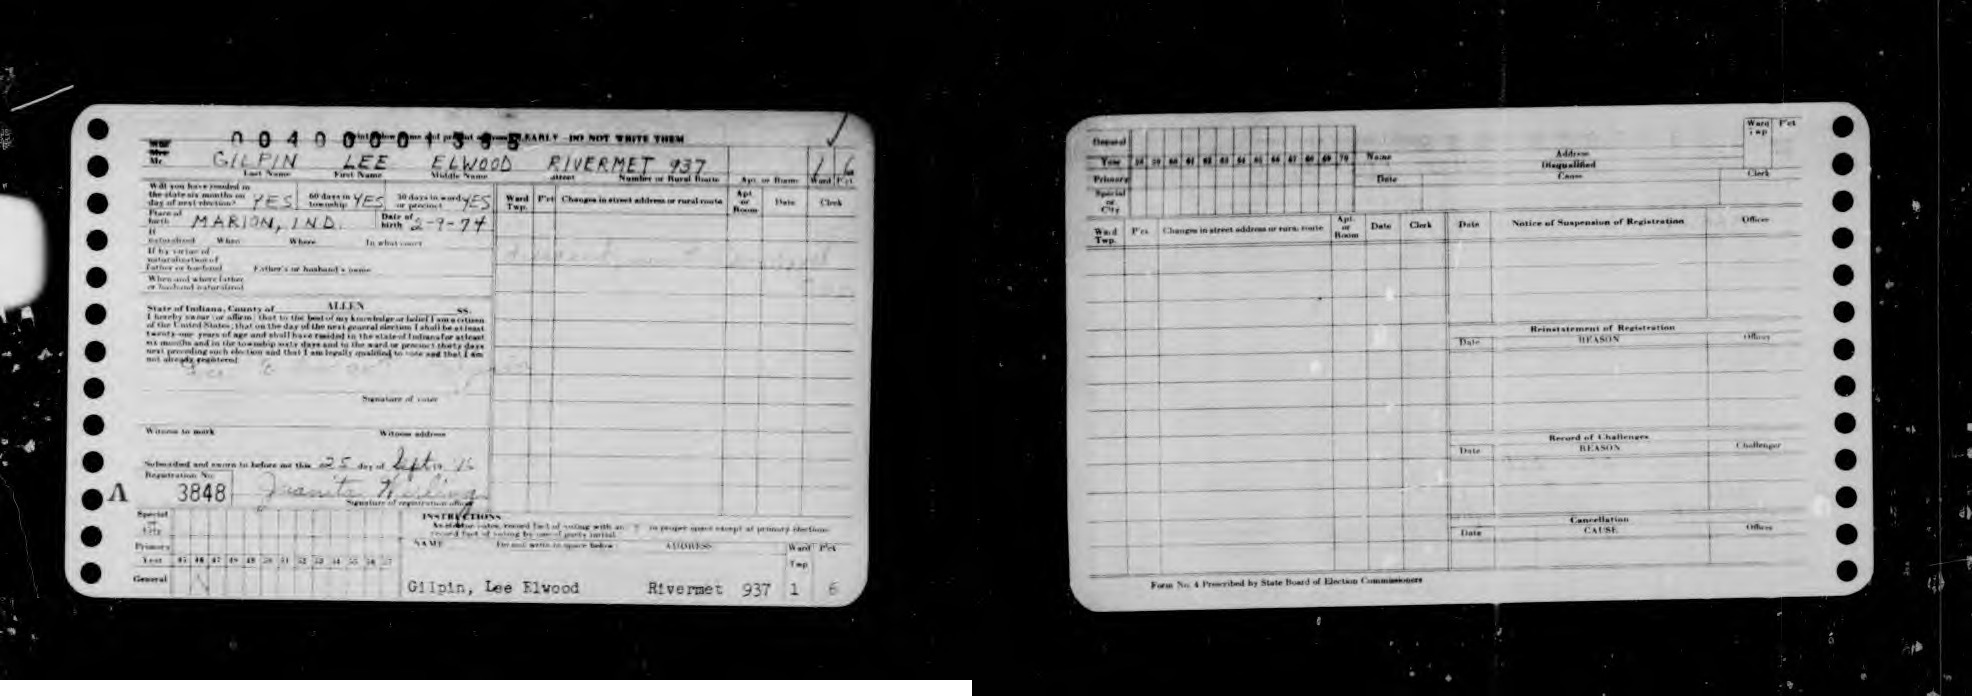 0040001395
EARLY DO NOT WRITE THEM
Mr.
GILPIN LEE ELWOOD RIVERMET 937 1 6
Last Name First Name Middle Name street Number or Rural Route Apt. or Room Ward P'ct.
Will you have resided in the state six months on day of next election? YES 60 days in township YES 30 days in ward or precinct YES
Place of birth MARION, IND. Date of birth 2-9-74
If naturalized When Where In what court
If by virtue of naturalization of Father or husband Father's or husband's name
When and where father or husband naturalized
Ward Twp. P'ct Changes in street address or rural route Apt. or Room Date Clerk
State of Indiana, County of ALLEN SS.
I hereby swear (or affirm) that to the best of my knowledge or belief I am a citizen
of the United States; that on the day of the next general election I shall be at least
twenty-one years of age and shall have resided in the state of Indiana for at least
six months and in the township sixty days and in the ward or precinct thirty days
next preceding such election and that I am legally qualified to vote and that I am
not already registered
Signature of voter
Witness to mark Witness address
Subscribed and sworn to before me this 25 day of Sept 19
Registration No. 3848
Juanita
Signature of registration officer
A
INSTRUCTIONS
record fact of voting with an in proper space except at primary elections
record fact of voting by use of party initial
Special or City
Primary
Year 45 46 47 48 49 50 51 52 53 54 55 56 57
General
NAME Do not write in space below ADDRESS Ward Twp P'ct
Gilpin, Lee Elwood Rivermet 937 1 6
General
Year 58 59 60 61 62 63 64 65 66 67 68 69 70
Primary
Special or City
Name Address Ward Twp P'ct
Disqualified
Date Cause Clerk
Ward Twp. P'ct Changes in street address or rural route Apt. or Room Date Clerk
Date Notice of Suspension of Registration Officer
Reinstatement of Registration
Date REASON Officer
Record of Challenges
Date REASON Challenger
Cancellation
Date CAUSE Officer
Form No. 4 Prescribed by State Board of Election Commissioners